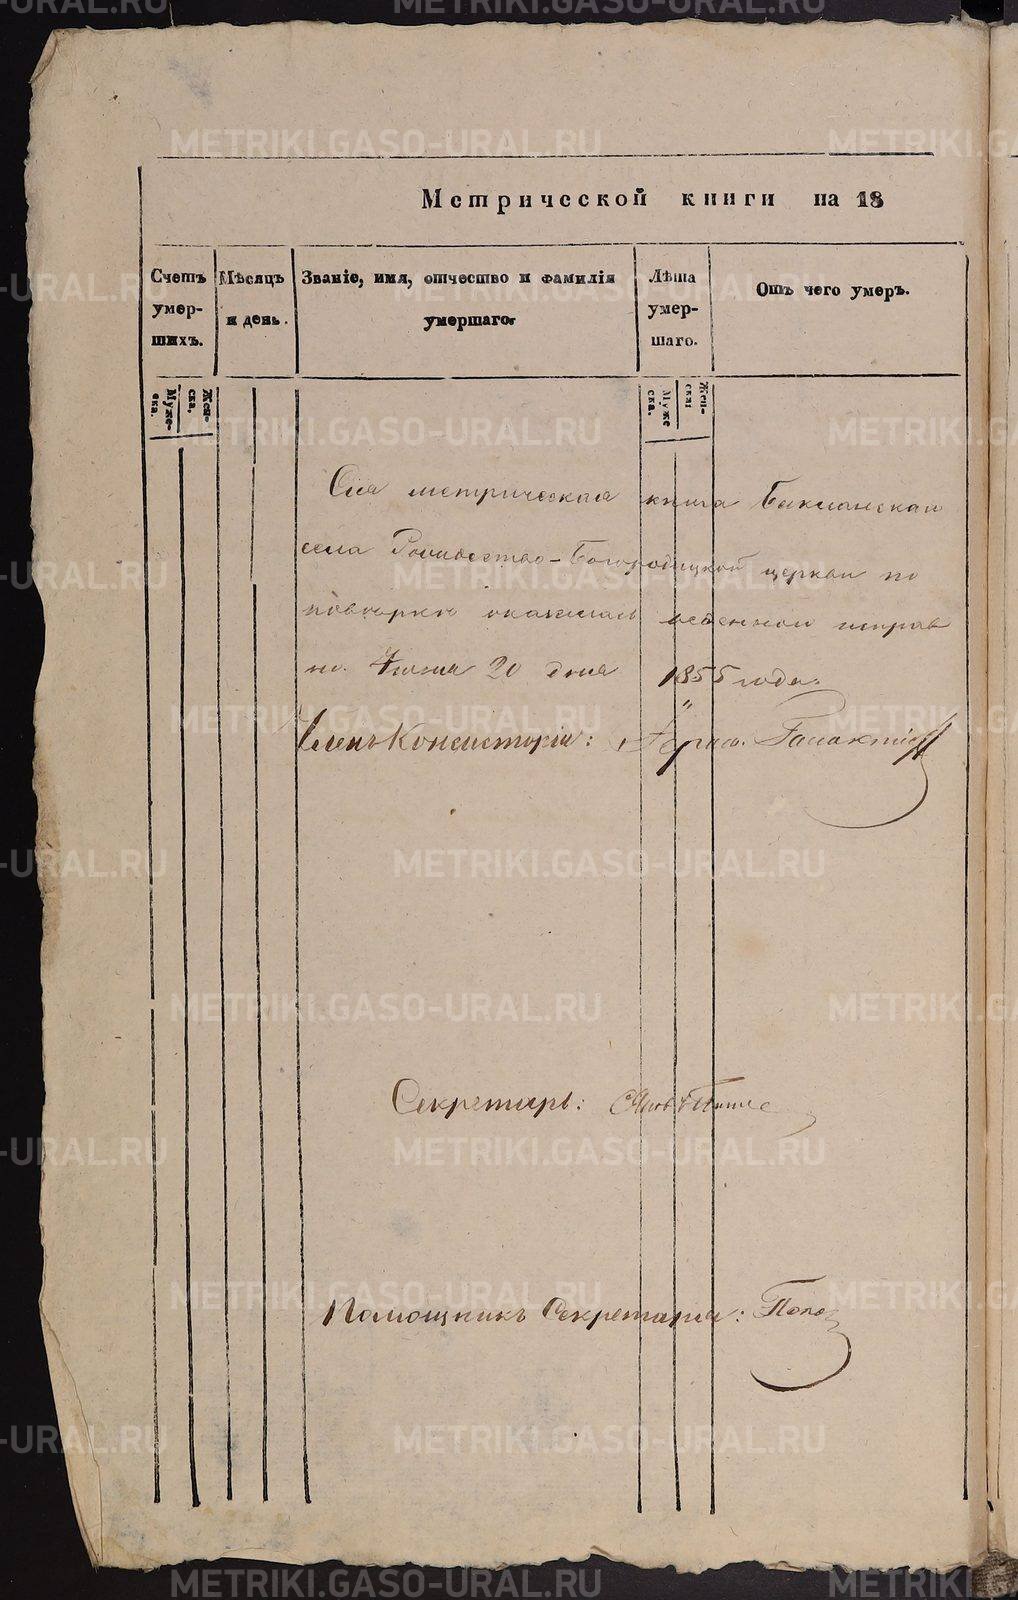 Метрической книги на 18
Счетъ умер-шихъ.
Мѣсяцъ и день.
Званіе, имя, отчество и фамилія умершаго.
Лѣта умер-шаго.
Отъ чего умеръ.
Муже-ска.
Жен-ска.
Муже ска.
Жен-ска:
Сія метрическая книга
села Рождество-Богородицкой церкви по
повѣрке оказалась веденной исправ
но. 20 дня 1855 года.
Членъ Консисторіи:
Секретарь:
Помощникъ Секретаря: Попо
METRIKI.GASO-URAL.RU